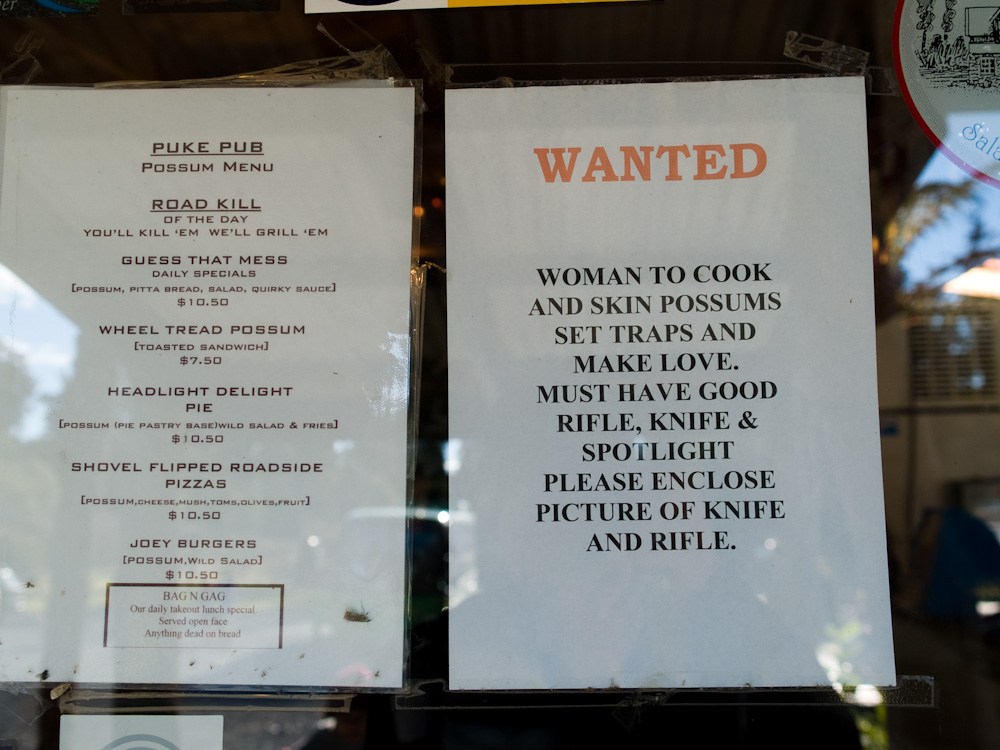 PUKE PUB
POSSUM MENU
ROAD KILL
OF THE DAY
YOU'LL KILL 'EM WE'LL GRILL 'EM
GUESS THAT MESS
DAILY SPECIALS
[POSSUM, PITTA BREAD, SALAD, QUIRKY SAUCE]
$10.50
WHEEL TREAD POSSUM
[TOASTED SANDWICH]
$7.50
HEADLIGHT DELIGHT
PIE
[POSSUM (PIE PASTRY BASE)WILD SALAD & FRIES]
$10.50
SHOVEL FLIPPED ROADSIDE
PIZZAS
[POSSUM,CHEESE,MUSH,TOMS,OLIVES,FRUIT]
$10.50
JOEY BURGERS
[POSSUM,WILD SALAD]
$10.50
BAG N GAG
Our daily takeout lunch special
Served open face
Anything dead on bread
WANTED
WOMAN TO COOK
AND SKIN POSSUMS
SET TRAPS AND
MAKE LOVE.
MUST HAVE GOOD
RIFLE, KNIFE &
SPOTLIGHT
PLEASE ENCLOSE
PICTURE OF KNIFE
AND RIFLE.